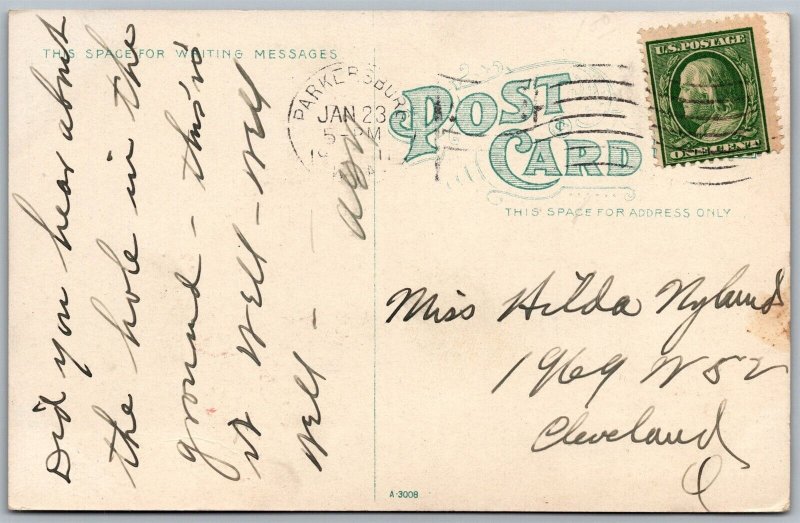 THIS SPACE FOR WRITING MESSAGES
Did you hear about
the hole in the
ground - this is
it Well - Well
Well -
PARKERSBURG
JAN 23
5-PM
POST
CARD
THIS SPACE FOR ADDRESS ONLY
U.S. POSTAGE
ONE CENT
Miss Hilda Nylund
1969 W 52
Cleveland
O
A-3008